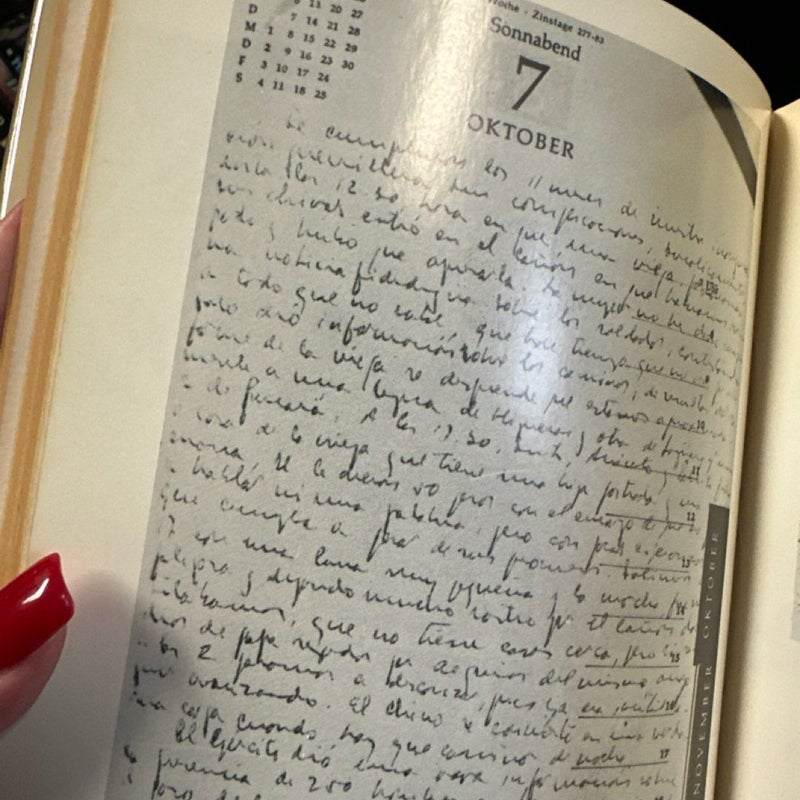 6 13 20 27
D 7 14 21 28
M 1 8 15 22 29
D 2 9 16 23 30
F 3 10 17 24
S 4 11 18 25
Woche · Zinstage 277-83
Sonnabend
7
OKTOBER
Se cumplieron los 11 meses de nuestra
guerrillera sin complicaciones, bucolicamente
hasta las 12.30, hora en que una vieja,
sus chivas entró en el cañon en que habiamos
y hubo que apresarla. La mujer no ha dado
noticia fidedigna sobre los soldados, contestando
a todo que no sabe, que hace tiempo que no va
solo dió información sobre los caminos, de
de la vieja se desprende que estamos
a una legua de Higueras y otra de
2 de Pucará. A las 17.30, Inti, Aniceto y
casa de la vieja que tiene una hija postrada y una
enana, se le dieron 50 pesos con el encargo de
a hablar ni una palabra, pero con pocas esperanzas
que cumpla a pesar de sus promesas. Salimos
17 con una luna muy pequeña y la marcha fue
y dejando mucho rastro por el cañon
estabamos, que no tiene casas cerca, pero
de papa regados por acequias del mismo
las 2 paramos a descansar, pues ya era inutil
avanzando. El Chino se convierte en una
carga cuando hay que caminar de noche
El Ejército dió una rara información sobre
presencia de 250
9
10
11
12
13
14
15
16
17
OKTOBER
NOVEMBER